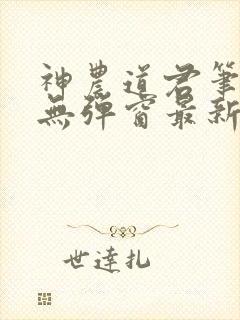 神農道君筆
無彈窗最新
世達扎